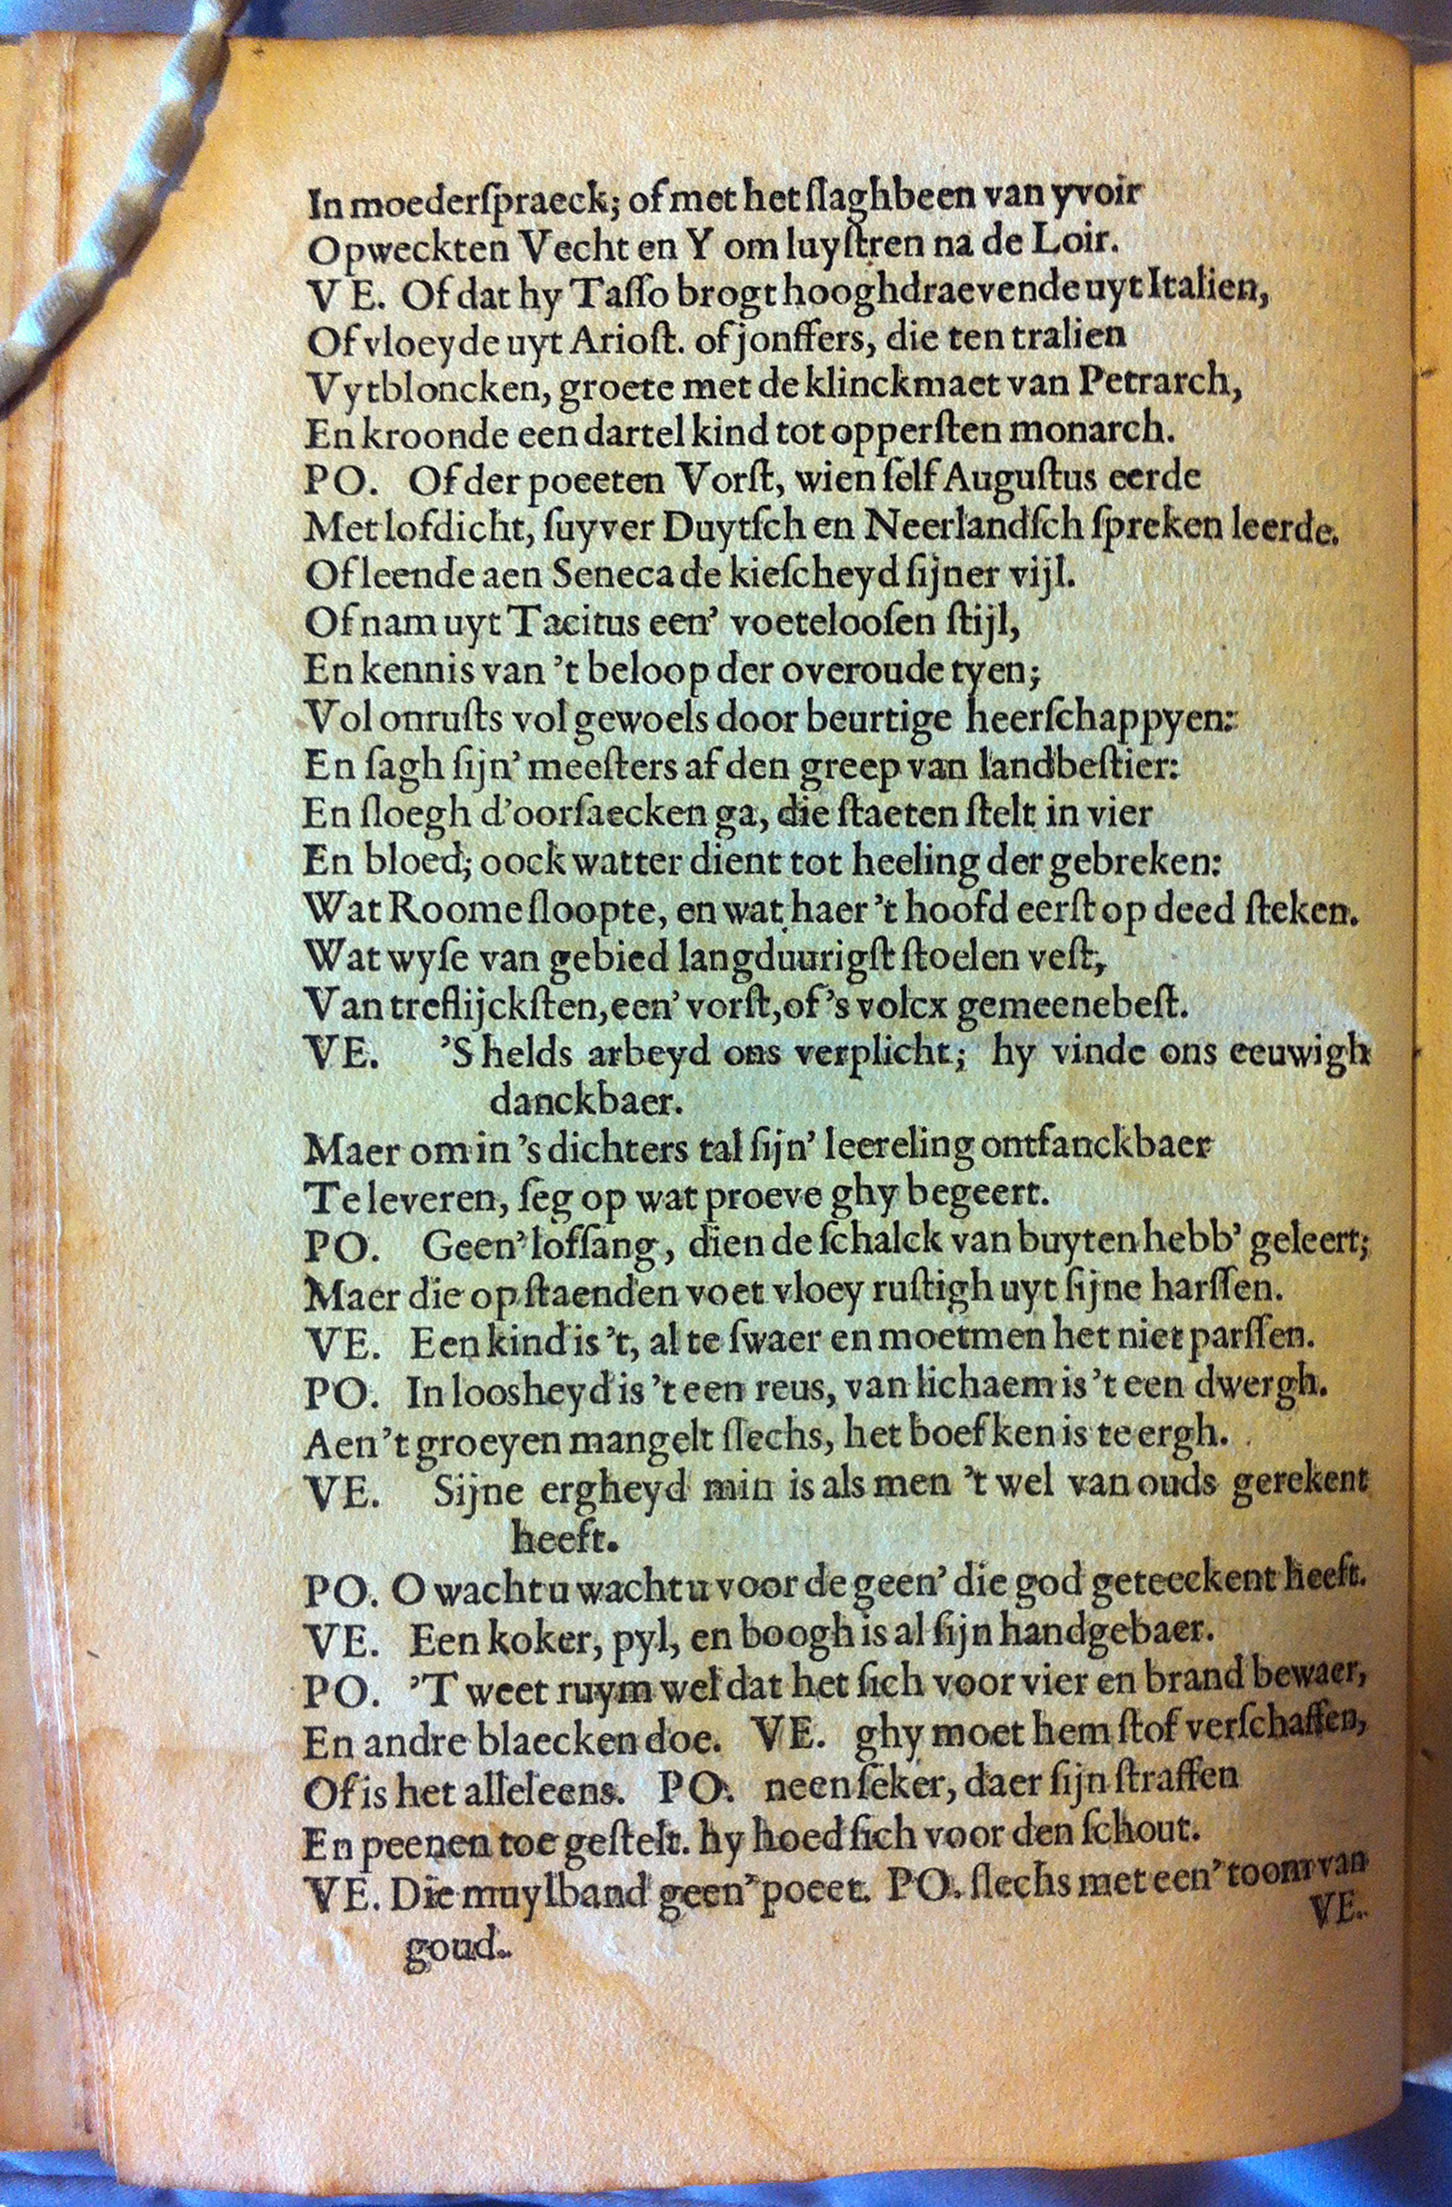 In moederſpraeck; of met het ſlaghbeen van yvoir
Opweckten Vecht en Y om luyſtren na de Loir.
VE. Of dat hy Taſſo brogt hooghdraevende uyt Italien,
Of vloeyde uyt Arioſt. of jonffers, die ten tralien
Vytbloncken, groete met de klinckmaet van Petrarch,
En kroonde een dartel kind tot opperſten monarch.
PO. Of der poeeten Vorſt, wien ſelf Auguſtus eerde
Met lofdicht, ſuyver Duytſch en Neerlandſch ſpreken leerde.
Of leende aen Seneca de kieſcheyd ſijner vijl.
Of nam uyt Tacitus een' voetelooſen ſtijl,
En kennis van 't beloop der overoude tyen;
Vol onruſts vol gewoels door beurtige heerſchappyen:
En ſagh ſijn' meeſters af den greep van landbeſtier:
En ſloegh d'oorſaecken ga, die ſtaeten ſtelt in vier
En bloed; oock watter dient tot heeling der gebreken:
Wat Roome ſloopte, en wat haer 't hoofd eerſt op deed ſteken.
Wat wyſe van gebied langduurigſt ſtoelen veſt,
Van treflijckſten, een' vorſt, of 's volcx gemeenebeſt.
VE. 'S helds arbeyd ons verplicht; hy vinde ons eeuwigh
danckbaer.
Maer om in 's dichters tal ſijn' leereling ontfanckbaer
Te leveren, ſeg op wat proeve ghy begeert.
PO. Geen' lofſang, dien de ſchalck van buyten hebb' geleert;
Maer die op ſtaenden voet vloey ruſtigh uyt ſijne harſſen.
VE. Een kind is 't, al te ſwaer en moetmen het niet parſſen.
PO. In loosheyd is 't een reus, van lichaem is 't een dwergh.
Aen 't groeyen mangelt ſlechs, het boefken is te ergh.
VE. Sijne ergheyd min is als men 't wel van ouds gerekent
heeft.
PO. O wacht u wacht u voor de geen' die god geteeckent heeft.
VE. Een koker, pyl, en boogh is al ſijn handgebaer.
PO. 'T weet ruym wel dat het ſich voor vier en brand bewaer,
En andre blaecken doe. VE. ghy moet hem ſtof verſchaffen,
Of is het alleleens. PO. neen ſeker, daer ſijn ſtraffen
En peenen toe geſtelt. hy hoed ſich voor den ſchout.
VE. Die muylband geen' poeet. PO. ſlechs met een' toom van
goud.
VE.